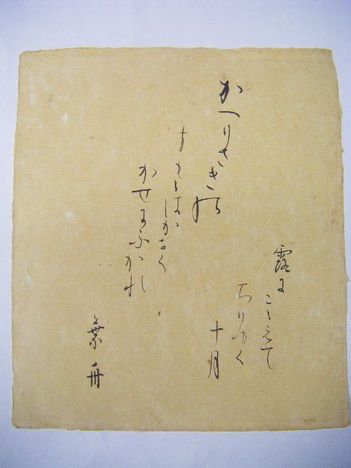 かへりさきの
すもゝは
はかなく
かせにふかれ
露に
こゝえて
ちりゆく
十月
葉舟